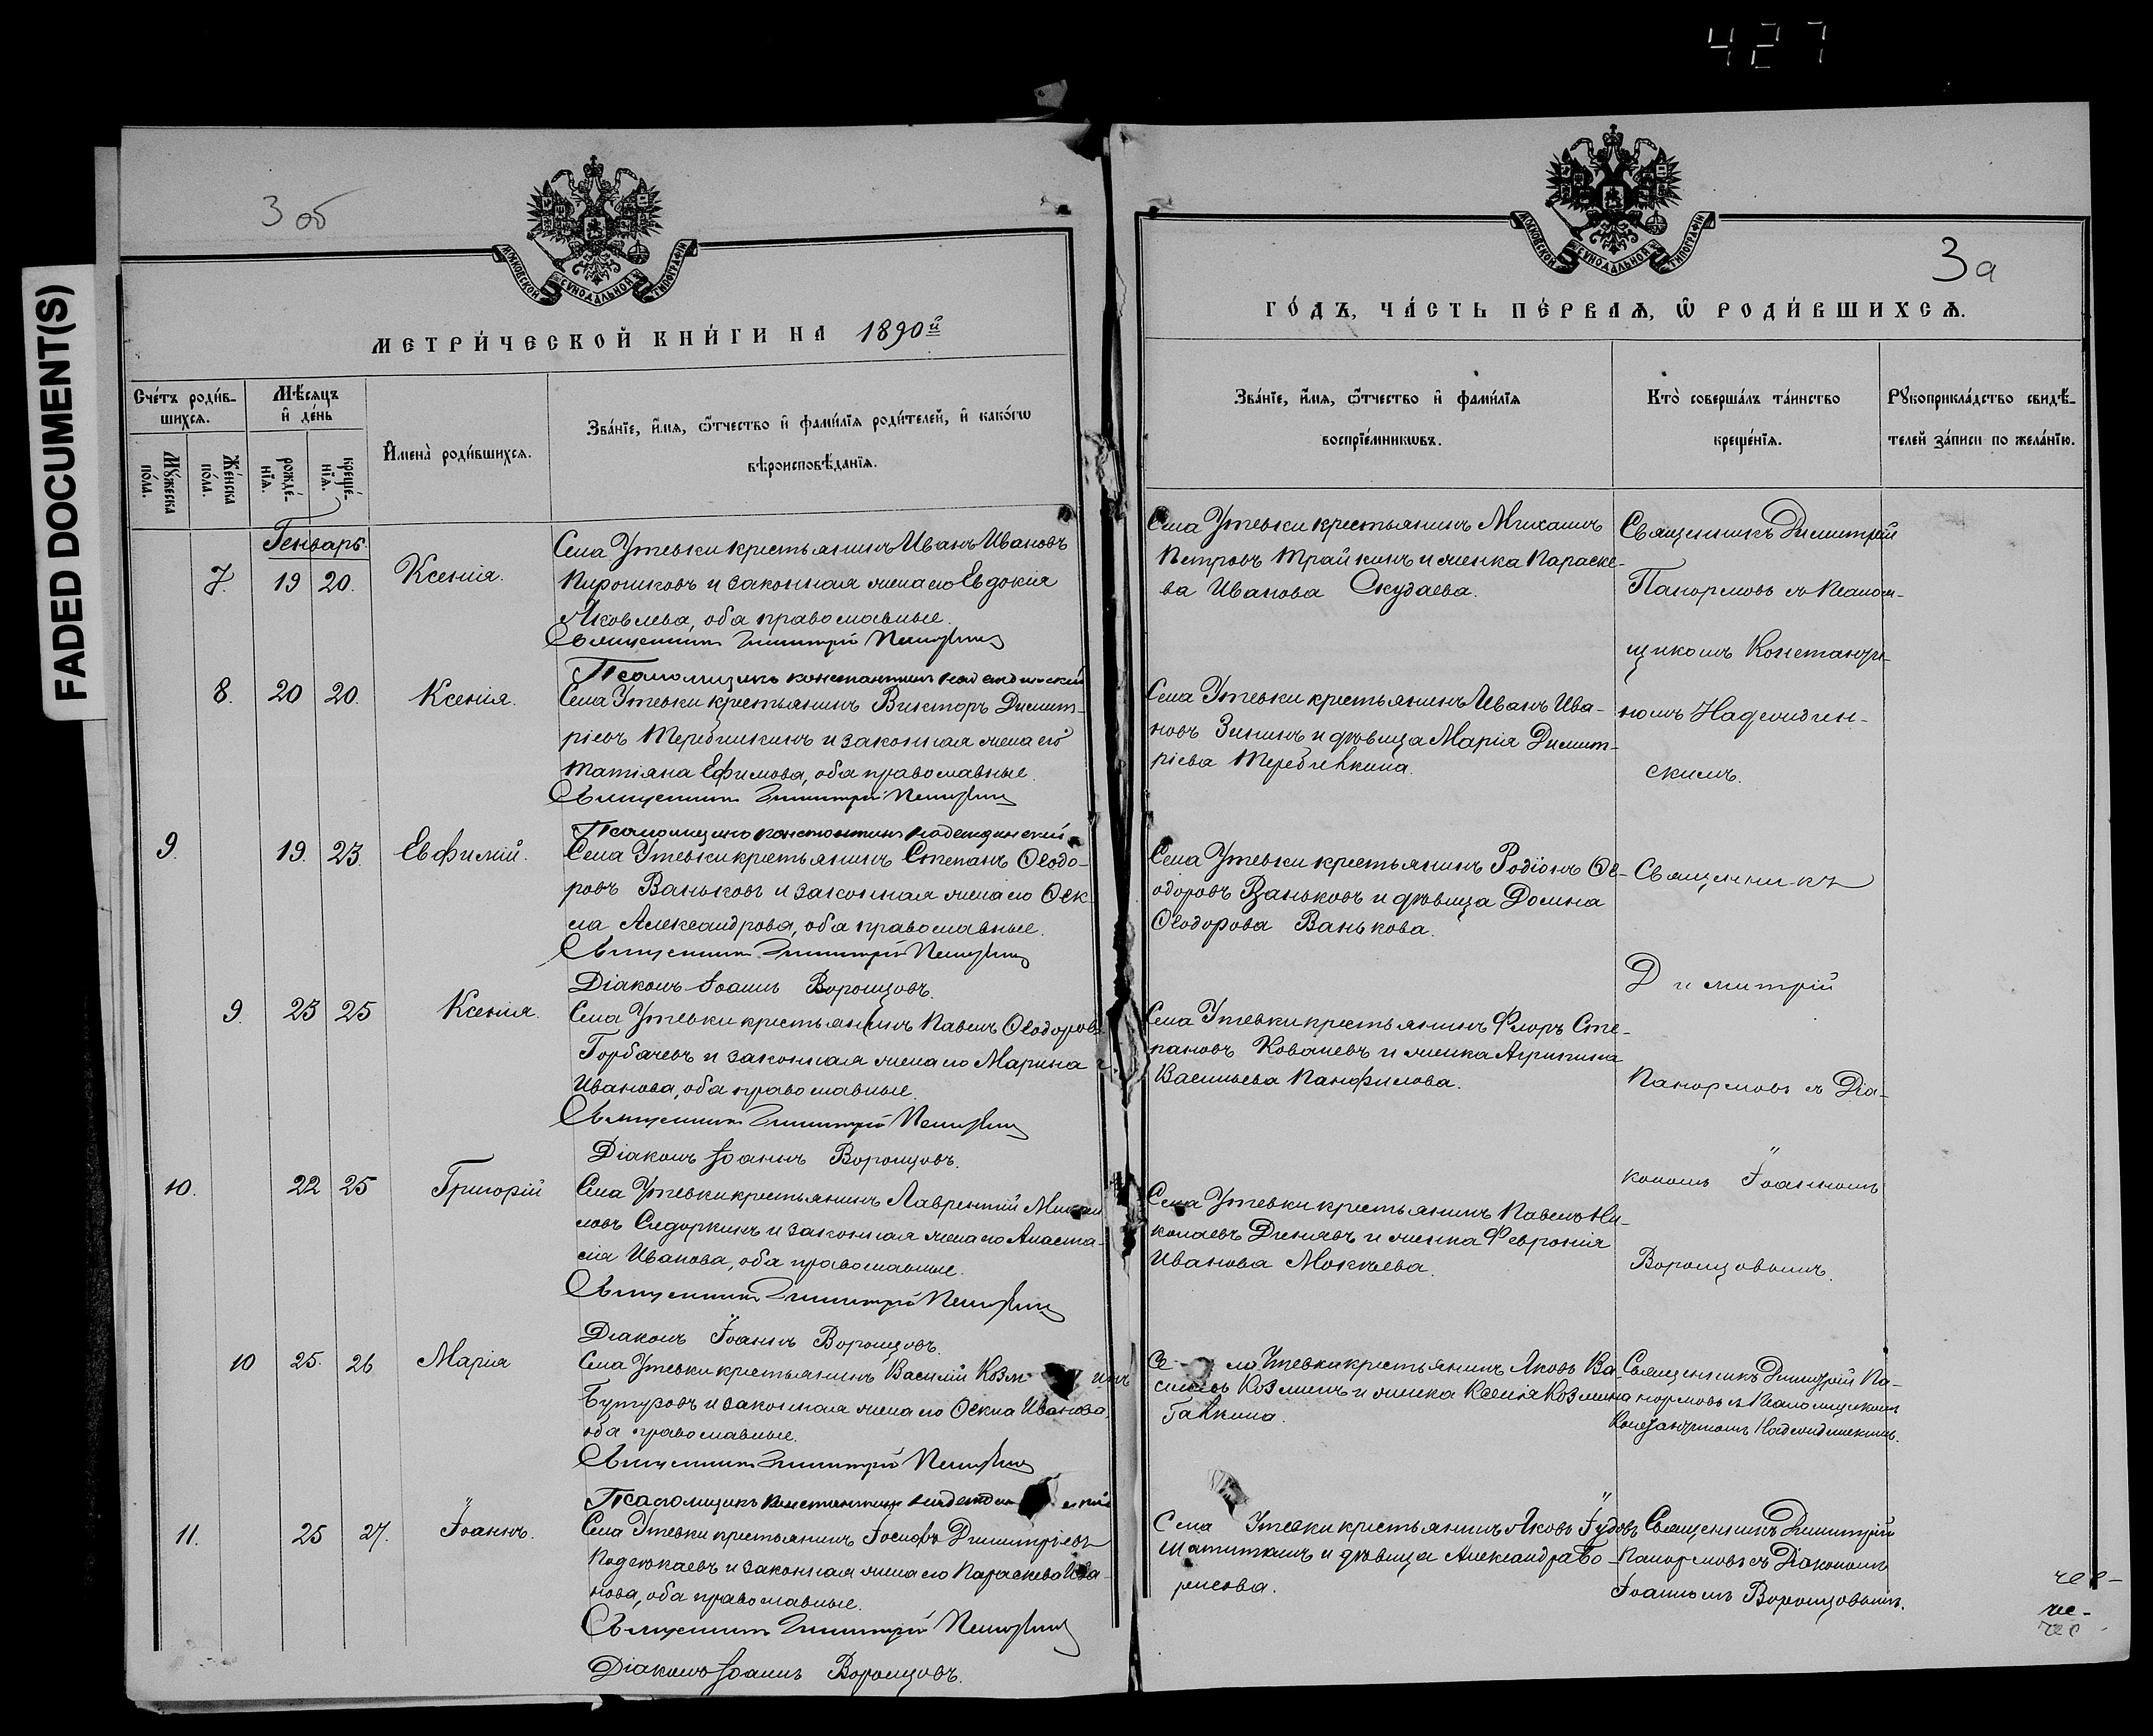 427
FADED DOCUMENT(S)
3 об
МОСКОВСКОЙ СѴНОДАЛЬНОЙ ТИПОГРАФІИ
МЕТРИ́ЧЕСКОЙ КНИ́ГИ НА 1890й
Сче́тъ роди́в-
шихся.
Мѣ́сяцъ
и҆ де́нь
Мꙋ́жеска
по́ла.
Же́нска
по́ла.
рожде́-
нїя.
креще́-
нїя.
И҆мена̀ роди́вшихся.
Зва́нїе, и҆́мя, ѻ҆́тчество и҆ фамі́лїя роди́телей, и҆ како́гѡ
вѣроисповѣ́данїя.
Генварь.
7. 19 20. Ксенія.
Села Утевки крестьянинъ Иванъ Ивановъ
Пирожковъ и законная жена его Евдокія
Яковлева, оба православные.
Священникъ Димитрій Панормовъ
Псаломщикъ Константинъ Надеждинскій
8. 20 20. Ксенія.
Села Утевки крестьянинъ Викторъ Димит-
ріевъ Теребишкинъ и законная жена его
Татіяна Ефимова, оба православные.
Священникъ Димитрій Панормовъ
Псаломщикъ Константинъ Надеждинскій
9. 19. 23. Евфимій.
Села Утевки крестьянинъ Степанъ Ѳеодо-
ровъ Ваньковъ и законная жена его Ѳек-
ла Александрова, оба православные.
Священникъ Димитрій Панормовъ
Діаконъ Іоаннъ Воронцовъ.
9. 23 25 Ксенія.
Села Утевки крестьянинъ Павелъ Ѳеодоровъ
Горбачевъ и законная жена его Марина
Иванова, оба православные.
Священникъ Димитрій Панормовъ
Діаконъ Іоаннъ Воронцовъ.
10. 22 25 Григорій
Села Утевки крестьянинъ Лаврентій Михаи
ловъ Сидоркинъ и законная жена его Анаста-
сія Иванова, оба православные.
Священникъ Димитрій Панормовъ
Діаконъ Іоаннъ Воронцовъ.
10 25. 26 Марія
Села Утевки крестьянинъ Василій Козм инъ
Бутуровъ и законная жена его Ѳекла Иванова,
оба православные.
Священникъ Димитрій Панормовъ
Псаломщикъ Константинъ Надеждинскій
11. 25 27. Іоаннъ.
Села Утевки крестьянинъ Іосифъ Димитріевъ
и законная жена его Параскева Ива-
нова, оба православные.
Священникъ Димитрій Панормовъ
Діаконъ Іоаннъ Воронцовъ.
МОСКОВСКОЙ СѴНОДАЛЬНОЙ ТИПОГРАФІИ
3а
ГО́ДЪ, ЧА́СТЬ ПЕ́РВАѦ, Ѽ РОДИ́ВШИХСѦ.
Зва́нїе, и҆́мя, ѻ҆́тчество и҆ фамі́лїя
воспрїе́мникѡвъ.
Кто̀ соверша́лъ та́инство
креще́нїя.
Рꙋкоприкла́дство свидѣ́-
телей за́писи по жела́нїю.
Села Утевки крестьянинъ Михаилъ
Петровъ Трайкинъ и женка Параске-
ва Иванова Скудаева.
Села Утевки крестьянинъ Иванъ Ива-
новъ Зининъ и дѣвица Марія Димит-
ріева Теребишкина.
Священникъ Димитрій
Панормовъ съ Псалом-
щикомъ Константи-
номъ Надеждин-
скимъ.
Села Утевки крестьянинъ Родіонъ Ѳе-
одоровъ Ваньковъ и дѣвица Домна
Ѳеодорова Ванькова.
Села Утевки крестьянинъ Флоръ Сте-
пановъ Ковалевъ и женка Агрипина
Васильева Панфилова.
Села Утевки крестьянинъ Павелъ Ни-
колаевъ Диняевъ и женка Февронія
Иванова Мокѣева.
Священникъ
Димитрій
Панормовъ съ Діа-
кономъ Іоанномъ
Воронцовымъ.
Се ла Утевки крестьянинъ Яковъ Ва-
сильевъ Козминъ и женка Ксенія Козмина
Галкина.
Священникъ Димитрій Па-
нормовъ съ Псаломщикомъ
Константиномъ Надеждинскимъ.
Села Утевки крестьянинъ Яковъ Іудовъ
Шатиткинъ и дѣвица Александра Бо-
рисова.
Священникъ Димитрій
Панормовъ съ Діакономъ
Іоанномъ Воронцовымъ.